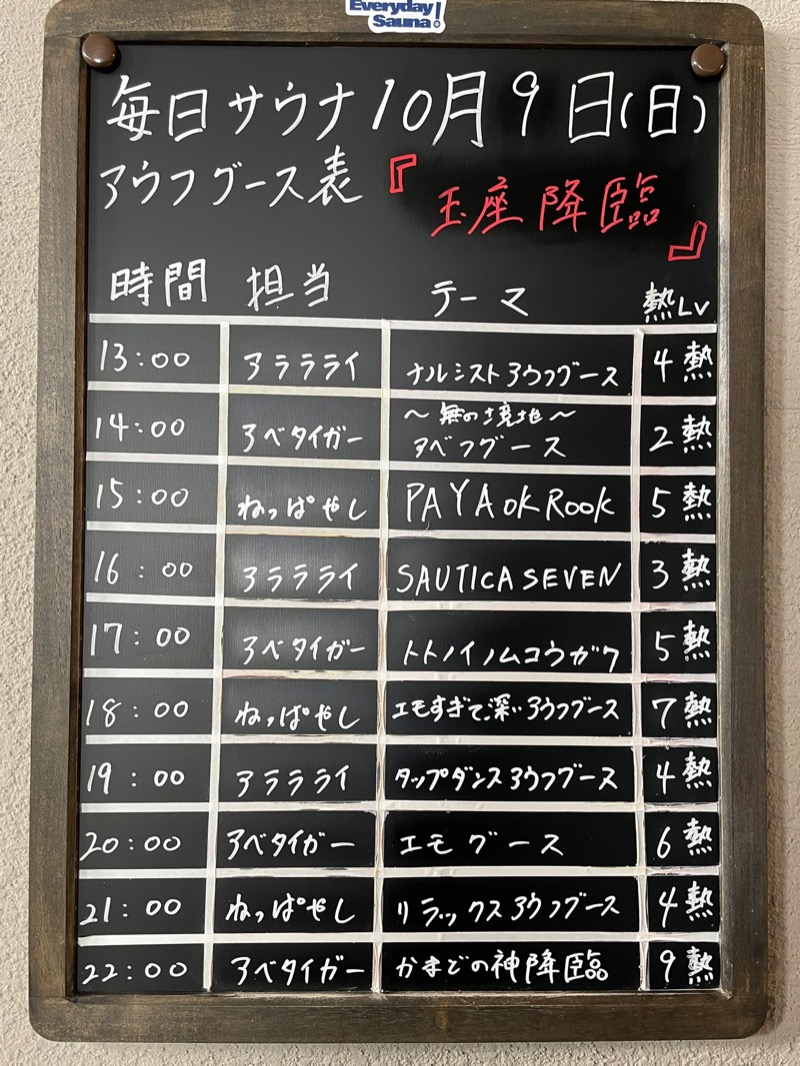 Everyday
Sauna!
毎日サウナ10月9日(日)
アウフグース表『玉座降臨』
時間 担当 テーマ 熱LV
13:00 アララライ ナルシストアウフグース 4熱
14:00 アベタイガー ～無の境地～ アベフグース 2熱
15:00 ねっぱやし PAYAOKROOK 5熱
16:00 アララライ SAUTICA SEVEN 3熱
17:00 アベタイガー トトノイノムコウガワ 5熱
18:00 ねっぱやし エモすぎて、深いアウフグース 7熱
19:00 アララライ タップダンスアウフグース 4熱
20:00 アベタイガー エモグース 6熱
21:00 ねっぱやし リラックスアウフグース 4熱
22:00 アベタイガー かまどの神降臨 9熱